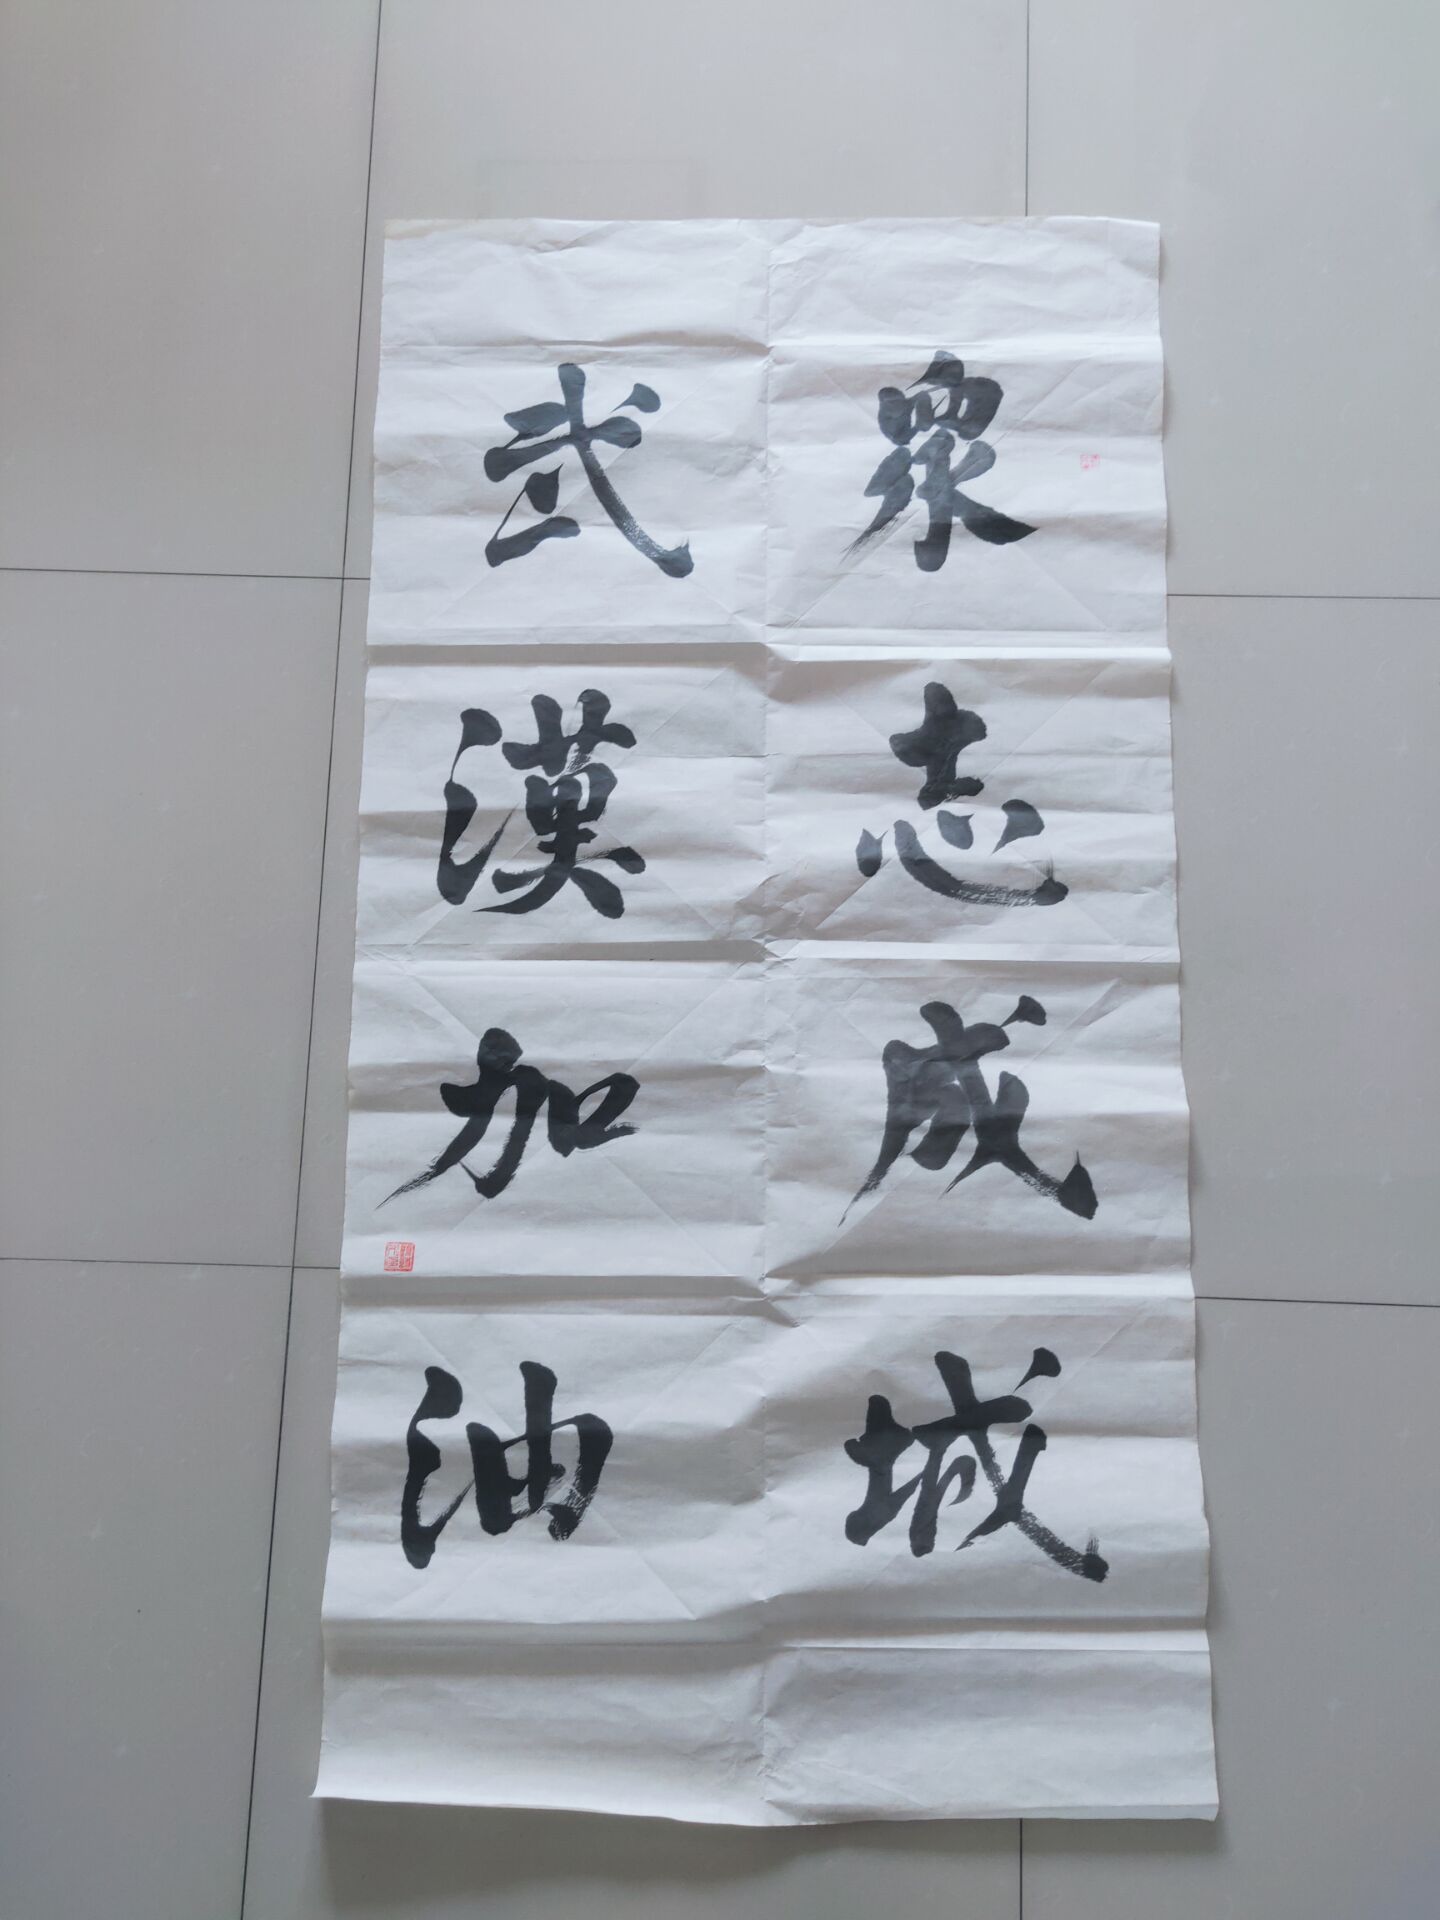 眾志成城
武漢加油